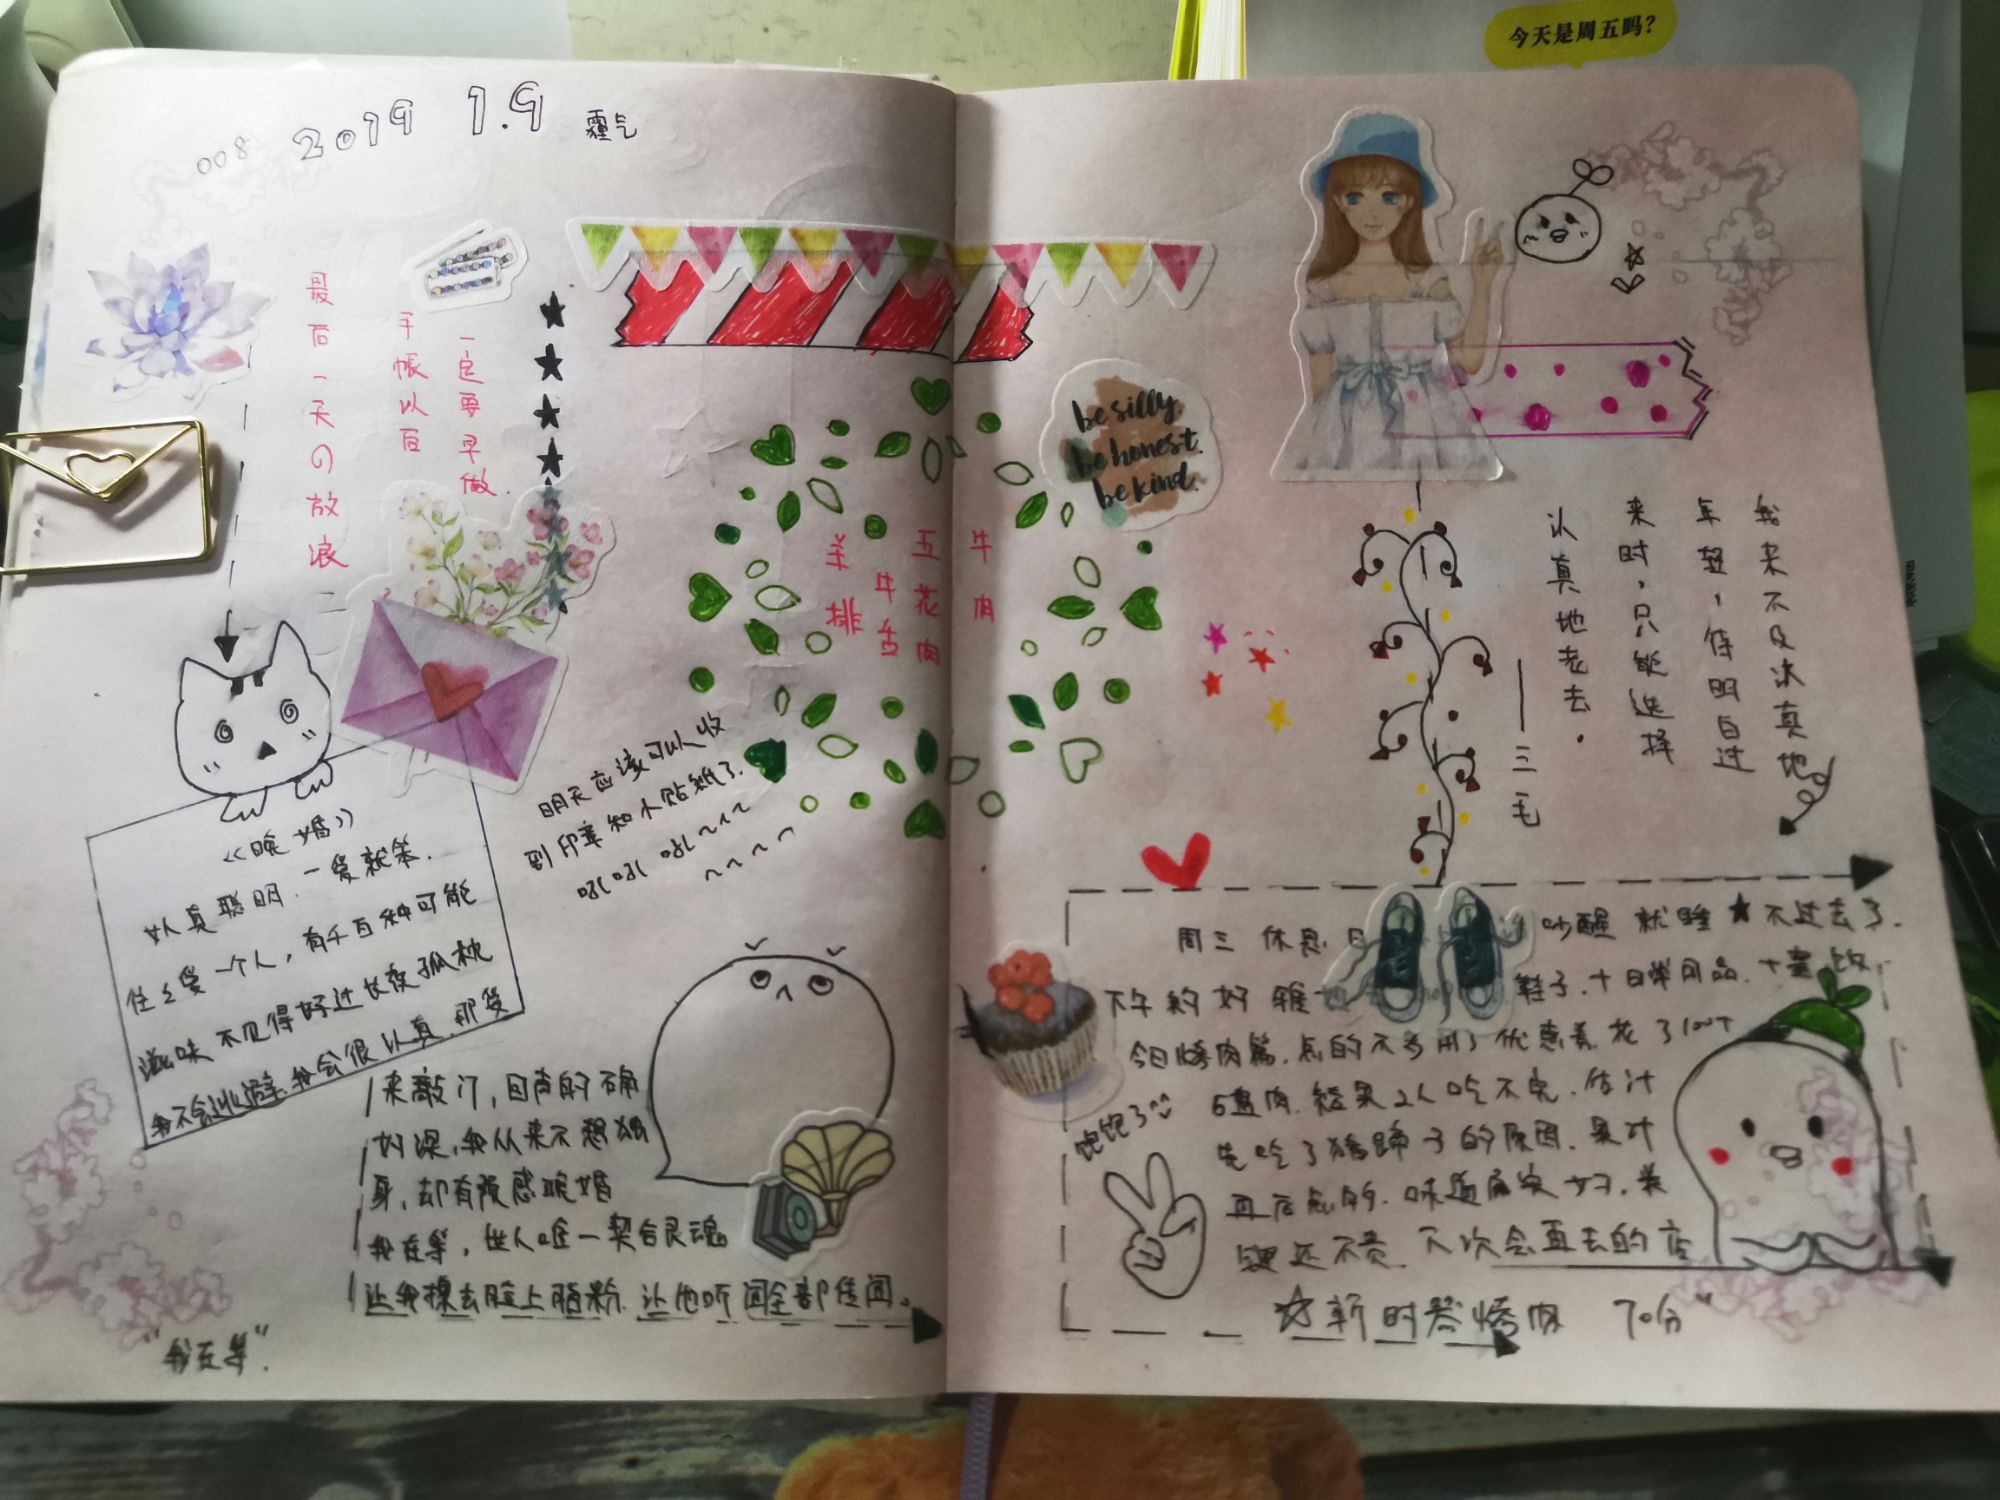 今天是周五吗?
008 2019 1.9 霾气
最后一天の放浪
手帐以后
一定要早做.
牛肉
五花肉
牛舌
羊排
be silly.
be honest.
be kind.
我来不及认真地
年轻，待明白过
来时，只能选择
认真地老去.
——三毛
明天应该可以收
到印章和小贴纸了.
吼吼 吼~~~
~~~~
<<晚婚>>
女人真聪明.一爱就笨.
往往爱一个人，有千百种可能
滋味不见得好过长夜孤枕
我不会逃避.我会很认真.那爱
来敲门，回声的确
好深，我从来不想独
身，却有预感晚婚
我在等，世人唯一契合灵魂
让我擦去脸上脂粉.让他听闻全部传闻。
"我在等".
周三 休息日 吵醒 就睡★不过去了.
下午约好雅 鞋子.十日常用品.十
今日烤肉篇.点的不多用了优惠券花了100+
5盘肉.结果2人吃不完.估计
先吃了猪蹄子的原因.果汁
再后点的.味道确实好.关
键还不贵.下次会再去的店
饱饱了^^
☆新时答烤肉 70分"